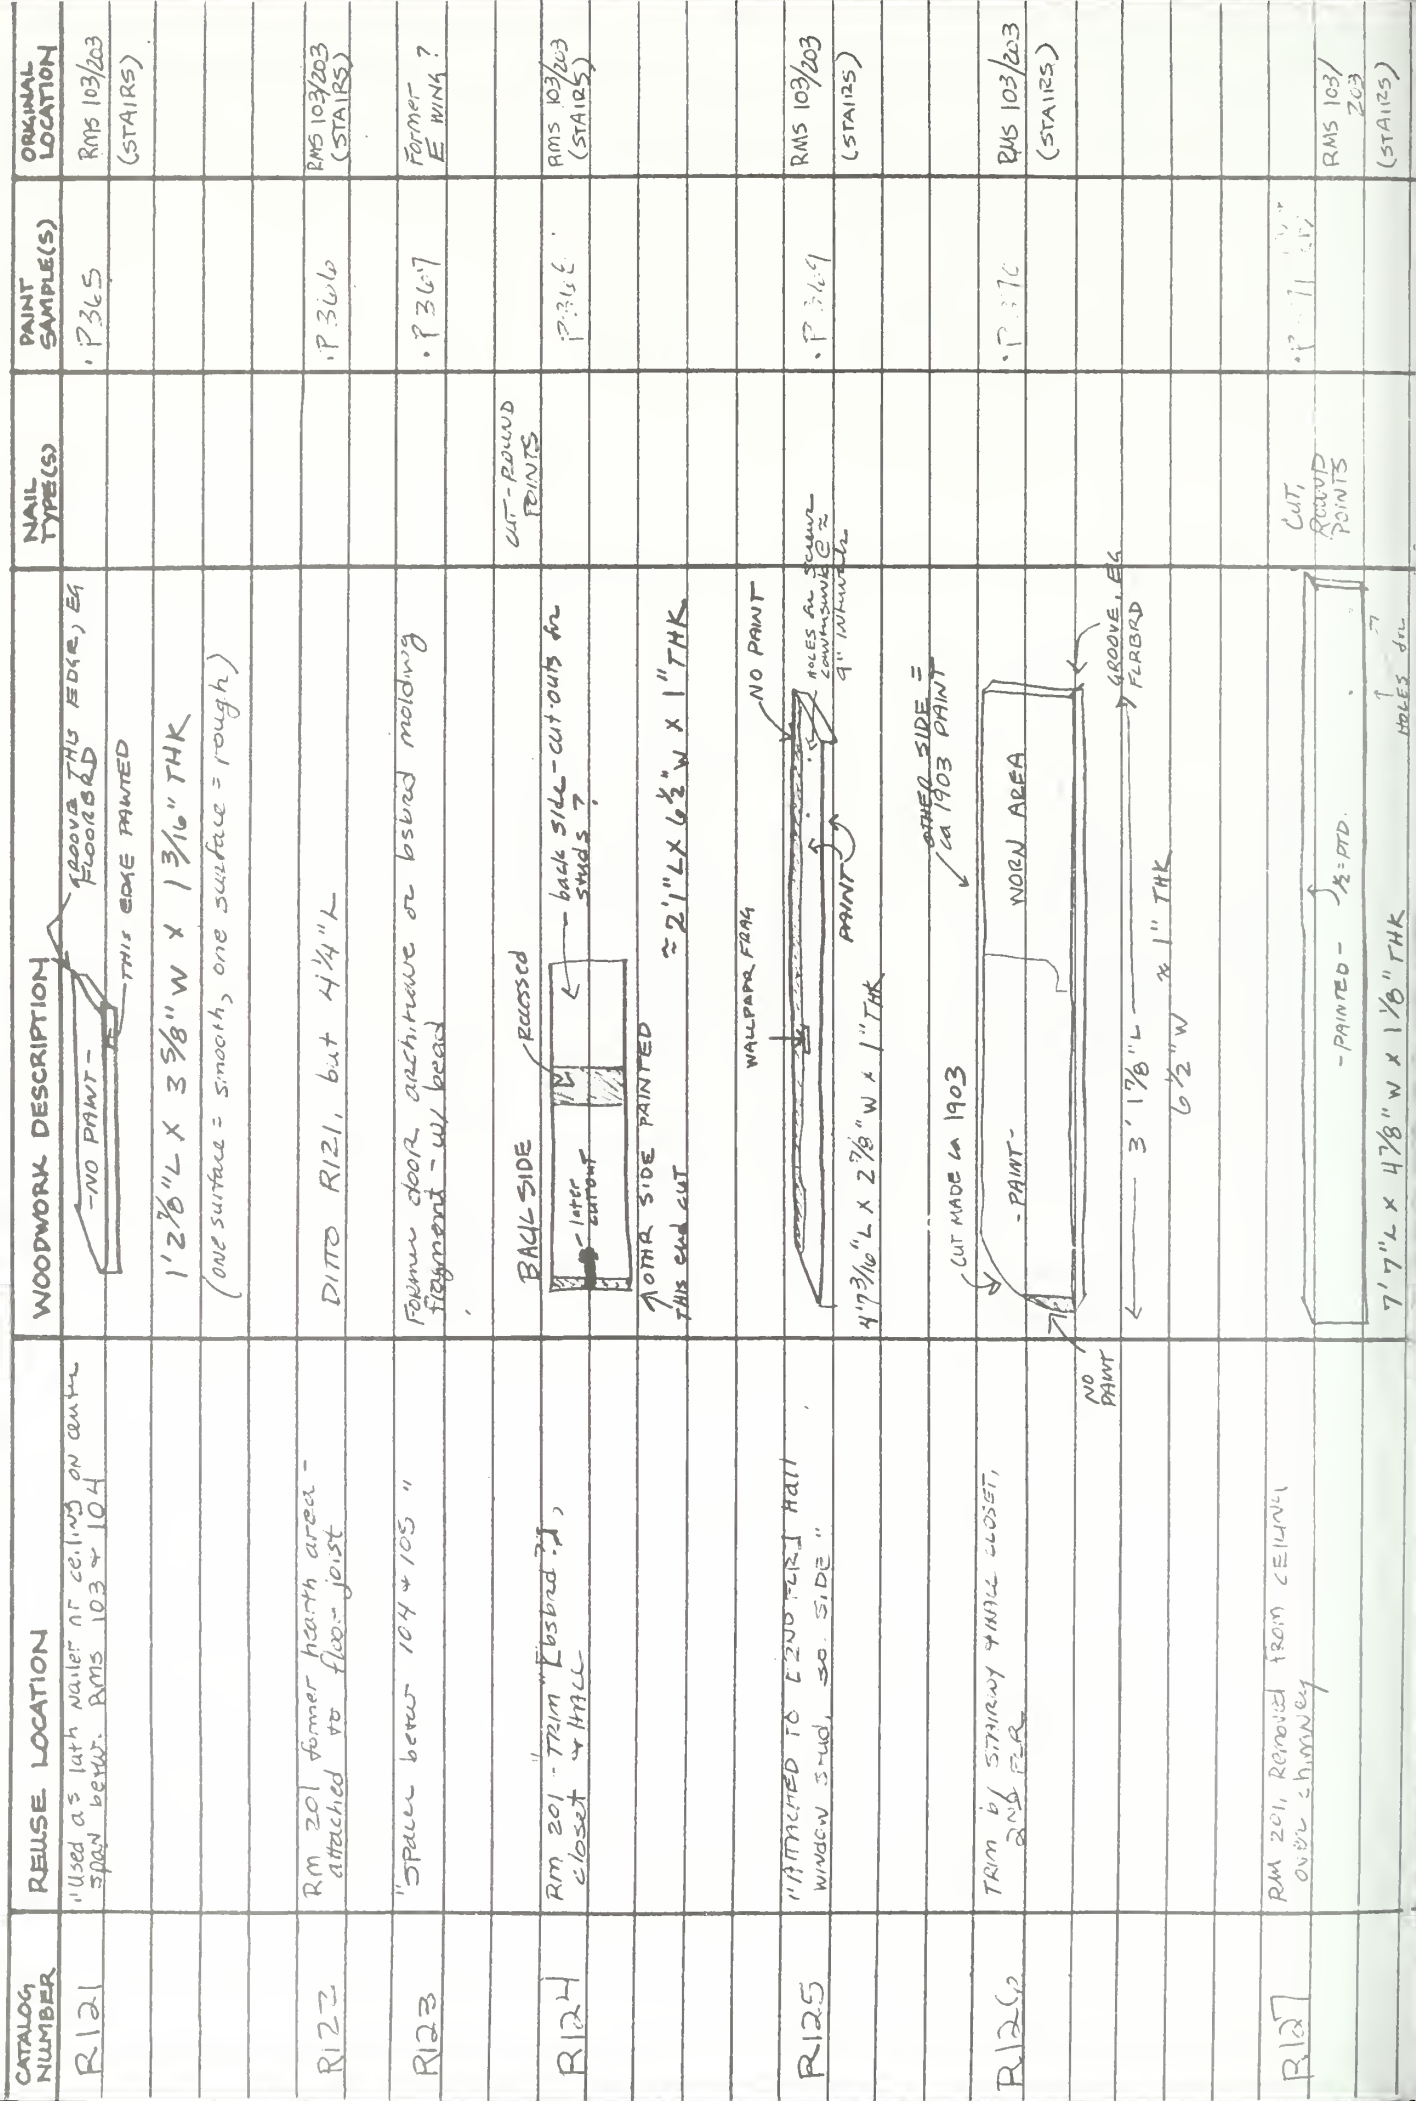 CATALOG NUMBER
REUSE LOCATION
WOODWORK DESCRIPTION
NAIL TYPE(S)
PAINT SAMPLE(S)
ORIGINAL LOCATION
R121
"Used as lath nailer at ceiling on center
span betw. RMS 103 + 104
GROOVE THIS EDGE, EG
FLOORBRD
-NO PAINT-
THIS EDGE PAINTED
1' 2 7/8" L X 3 5/8" W X 1 3/16" THK
(one surface = smooth, one surface = rough)
.P365
RMS 103/203
(STAIRS)
R122
Rm 201 former hearth area -
attached to floor joist
DITTO R121, but 4 1/4" L
.P366
RMS 103/203
(STAIRS)
R123
"Spacer betw 104 + 105"
Former door architrave or bsbrd molding
fragment - w/ bead
.P367
Former
E WING?
R124
Rm 201 - "TRIM" [bsbrd?],
closet + HALL
BACK SIDE
recessed
later
cutout
back side - cut outs for
studs?
OTHR SIDE PAINTED
THIS end cut
≈ 2'1" L X 6 1/2" W X 1" THK
CUT-ROUND
POINTS
P368
RMS 103/203
(STAIRS)
R125
"ATTACHED TO [2ND FLR] Hall
window stud, so. SIDE"
WALLPAPR FRAG
NO PAINT
PAINT
HOLES for screws
countersunk @ ≈
9" intervals
4' 7 3/16" L X 2 7/8" W X 1" THK
.P369
RMS 103/203
(STAIRS)
R126
TRIM b/ STAIRWY + HALL CLOSET,
2ND FLR
CUT MADE ca 1903
OTHER SIDE =
ca 1903 PAINT
-PAINT-
WORN AREA
NO
PAINT
GROOVE, EG
FLRBRD
3' 1 7/8" L
6 1/2" W
≈ 1" THK
.P370
RMS 103/203
(STAIRS)
R127
RM 201, Removed from CEILING
over chimney
-PAINTED-
1/2 = PTD.
HOLES
7' 7" L X 4 7/8" W X 1 1/8" THK
CUT,
ROUND
POINTS
RMS 103/
203
(STAIRS)